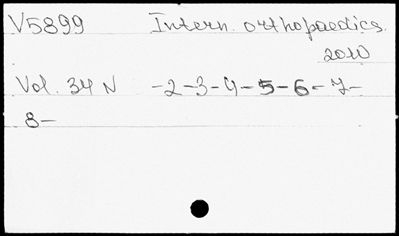 V5899 Intern. orthopaedics.
2010
Vol. 34 N -2-3-4-5-6-7-
8-